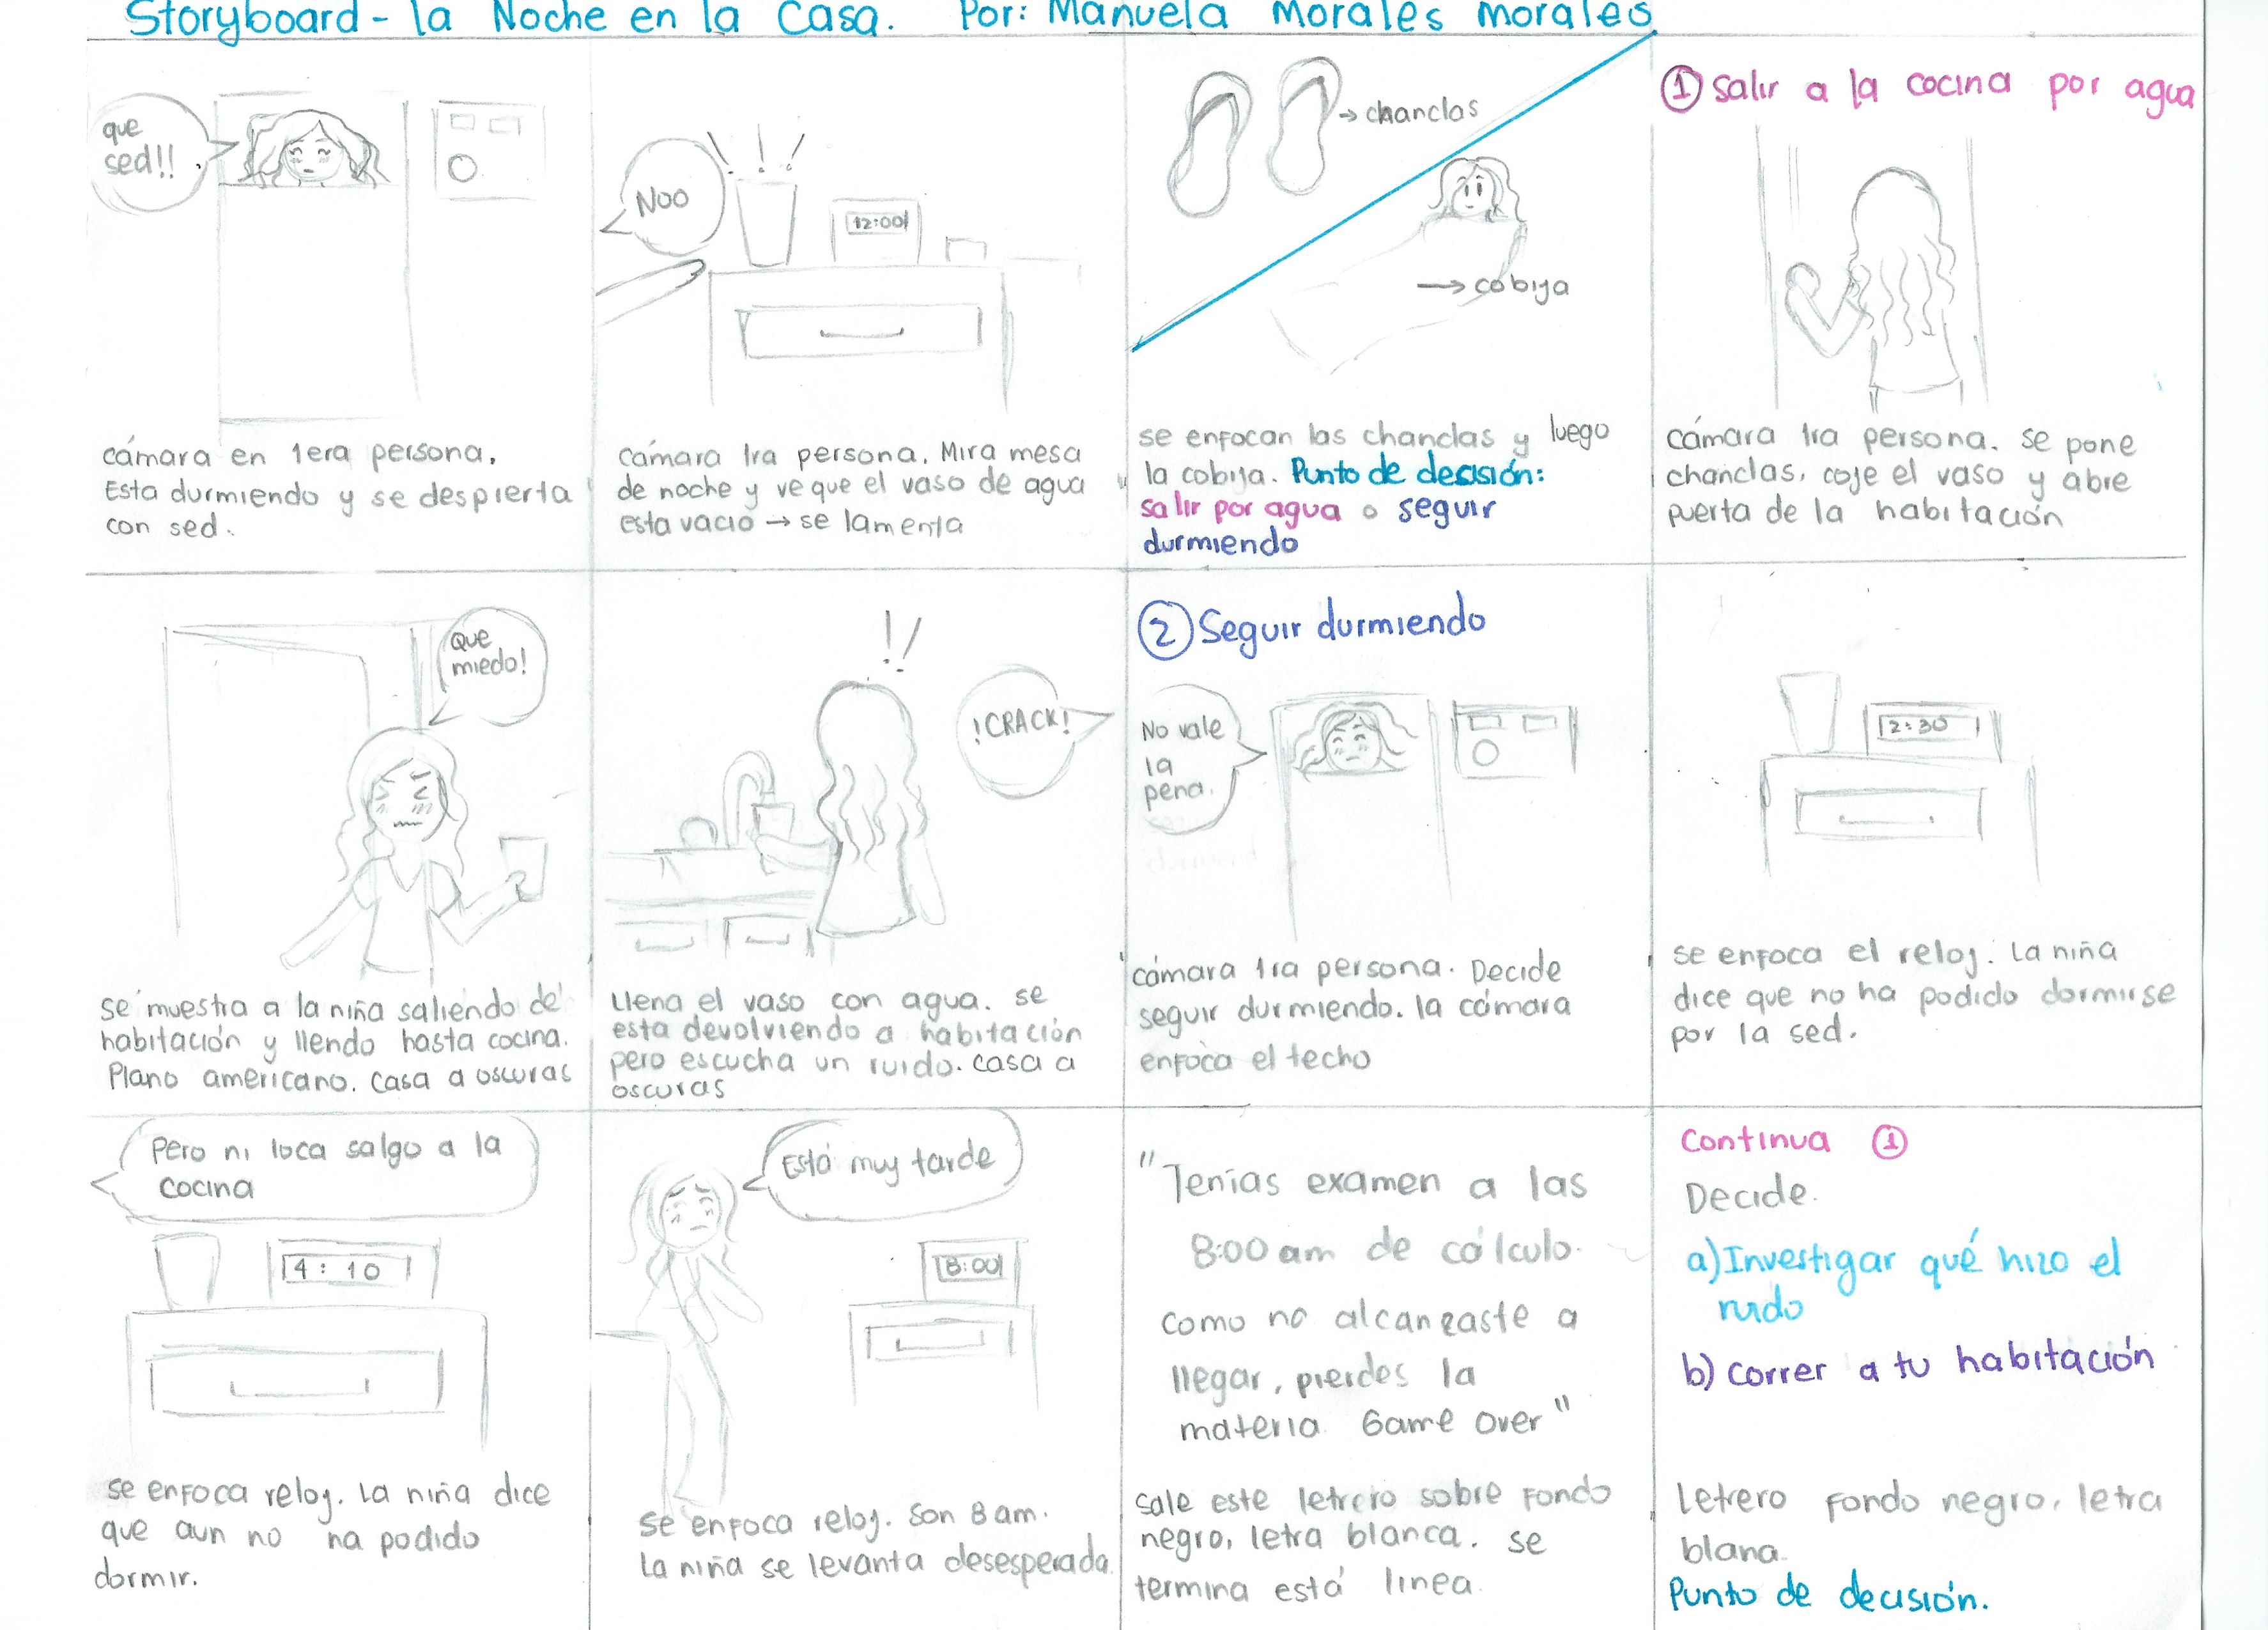 Storyboard - la Noche en la Casa. Por: Manuela Morales morales
que
sed!!
cámara en 1era persona.
Esta durmiendo y se despierta
con sed.
Noo
12:00
cámara 1ra persona. Mira mesa
de noche y ve que el vaso de agua
esta vacio → se lamenta
→ chanclas
→ cobija
se enfocan las chanclas y luego
la cobija. Punto de decisión:
salir por agua o seguir
durmiendo
① salir a la cocina por agua
cámara 1ra persona. se pone
chanclas, coje el vaso y abre
puerta de la habitación
Que
miedo!
se muestra a la niña saliendo de
habitación y llendo hasta cocina.
Plano americano. casa a oscuras
!CRACK!
llena el vaso con agua. se
esta devolviendo a habitación
pero escucha un ruido. casa a
oscuras
② Seguir durmiendo
No vale
la
pena.
cámara 1ra persona. Decide
seguir durmiendo. la cámara
enfoca el techo
2:30
se enfoca el reloj. La niña
dice que no ha podido dormirse
por la sed.
Pero ni loca salgo a la
cocina
4:10
se enfoca reloj. La niña dice
que aun no ha podido
dormir.
Está muy tarde
8:00
se enfoca reloj. Son 8 am.
La niña se levanta desesperada.
"Tenías examen a las
8:00 am de cálculo.
como no alcanzaste a
llegar, pierdes la
materia Game Over"
sale este letrero sobre fondo
negro, letra blanca. se
termina está linea.
continua ①
Decide.
a) Investigar qué hizo el
ruido
b) correr a tu habitación
Letrero fondo negro, letra
blana.
Punto de decisión.